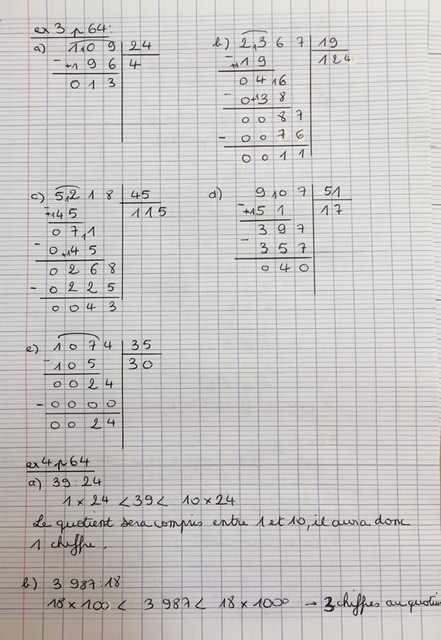 ex 3 p 64:
a) 109 | 24
- 96 | 4
013
b) 2367 | 19
- 19 | 124
046
- 038
0087
- 0076
0011
c) 5218 | 45
- 45 | 115
071
- 045
0268
- 0225
0043
d) 907 | 51
- 51 | 17
397
- 357
040
e) 1074 | 35
- 105 | 30
0024
- 0000
0024
ex 4 p 64
a) 39 : 24
1 x 24 < 39 < 10 x 24
Le quotient sera compris entre 1 et 10, il aura donc
1 chiffre.
b) 3 987 : 18
18 x 100 < 3 987 < 18 x 1000 → 3 chiffres au quotien